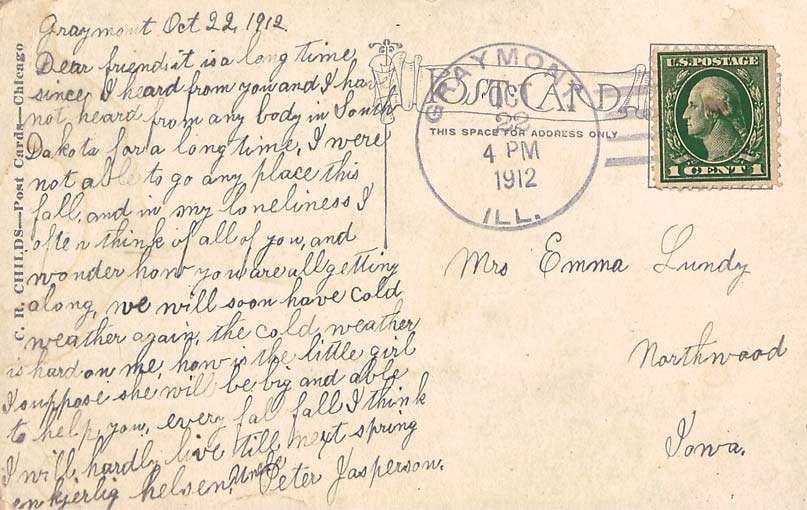 Graymont Oct 22, 1912.
Dear friends it is a long time
since I heard from you and I hav
not heard from any body in South
Dakota for a long time, I were
not able to go any place this
fall, and in my loneliness I
often think of all of you, and
wonder how you are all getting
along, we will soon have cold
weather again, the cold weather
is hard on me, how is the little girl
I suppose she will be big and able
to help you, every fal fall I think
I will hardly live till next spring
en kjerlig helsen, Uncle Peter Jasperson.
C. R. CHILDS—Post Cards—Chicago
POST CARD
THIS SPACE FOR ADDRESS ONLY
GRAYMONT
OCT
22
4 PM
1912
ILL.
U.S. POSTAGE
1 CENT 1
Mrs Emma Lundy
Northwood
Iowa.